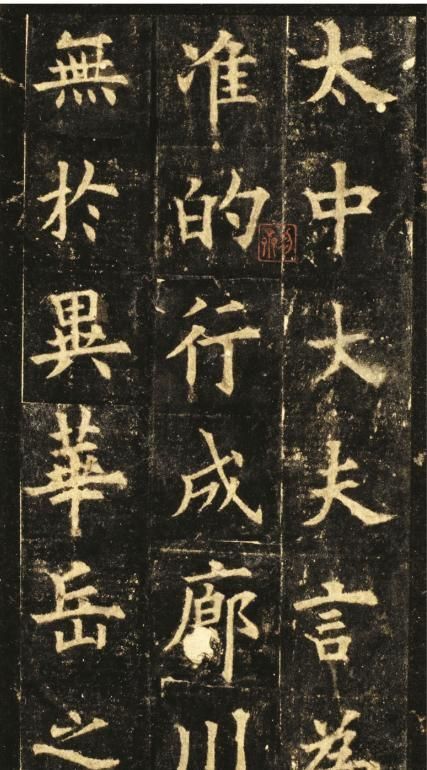 太中大夫言為
准的行成廊
無於異華岳之